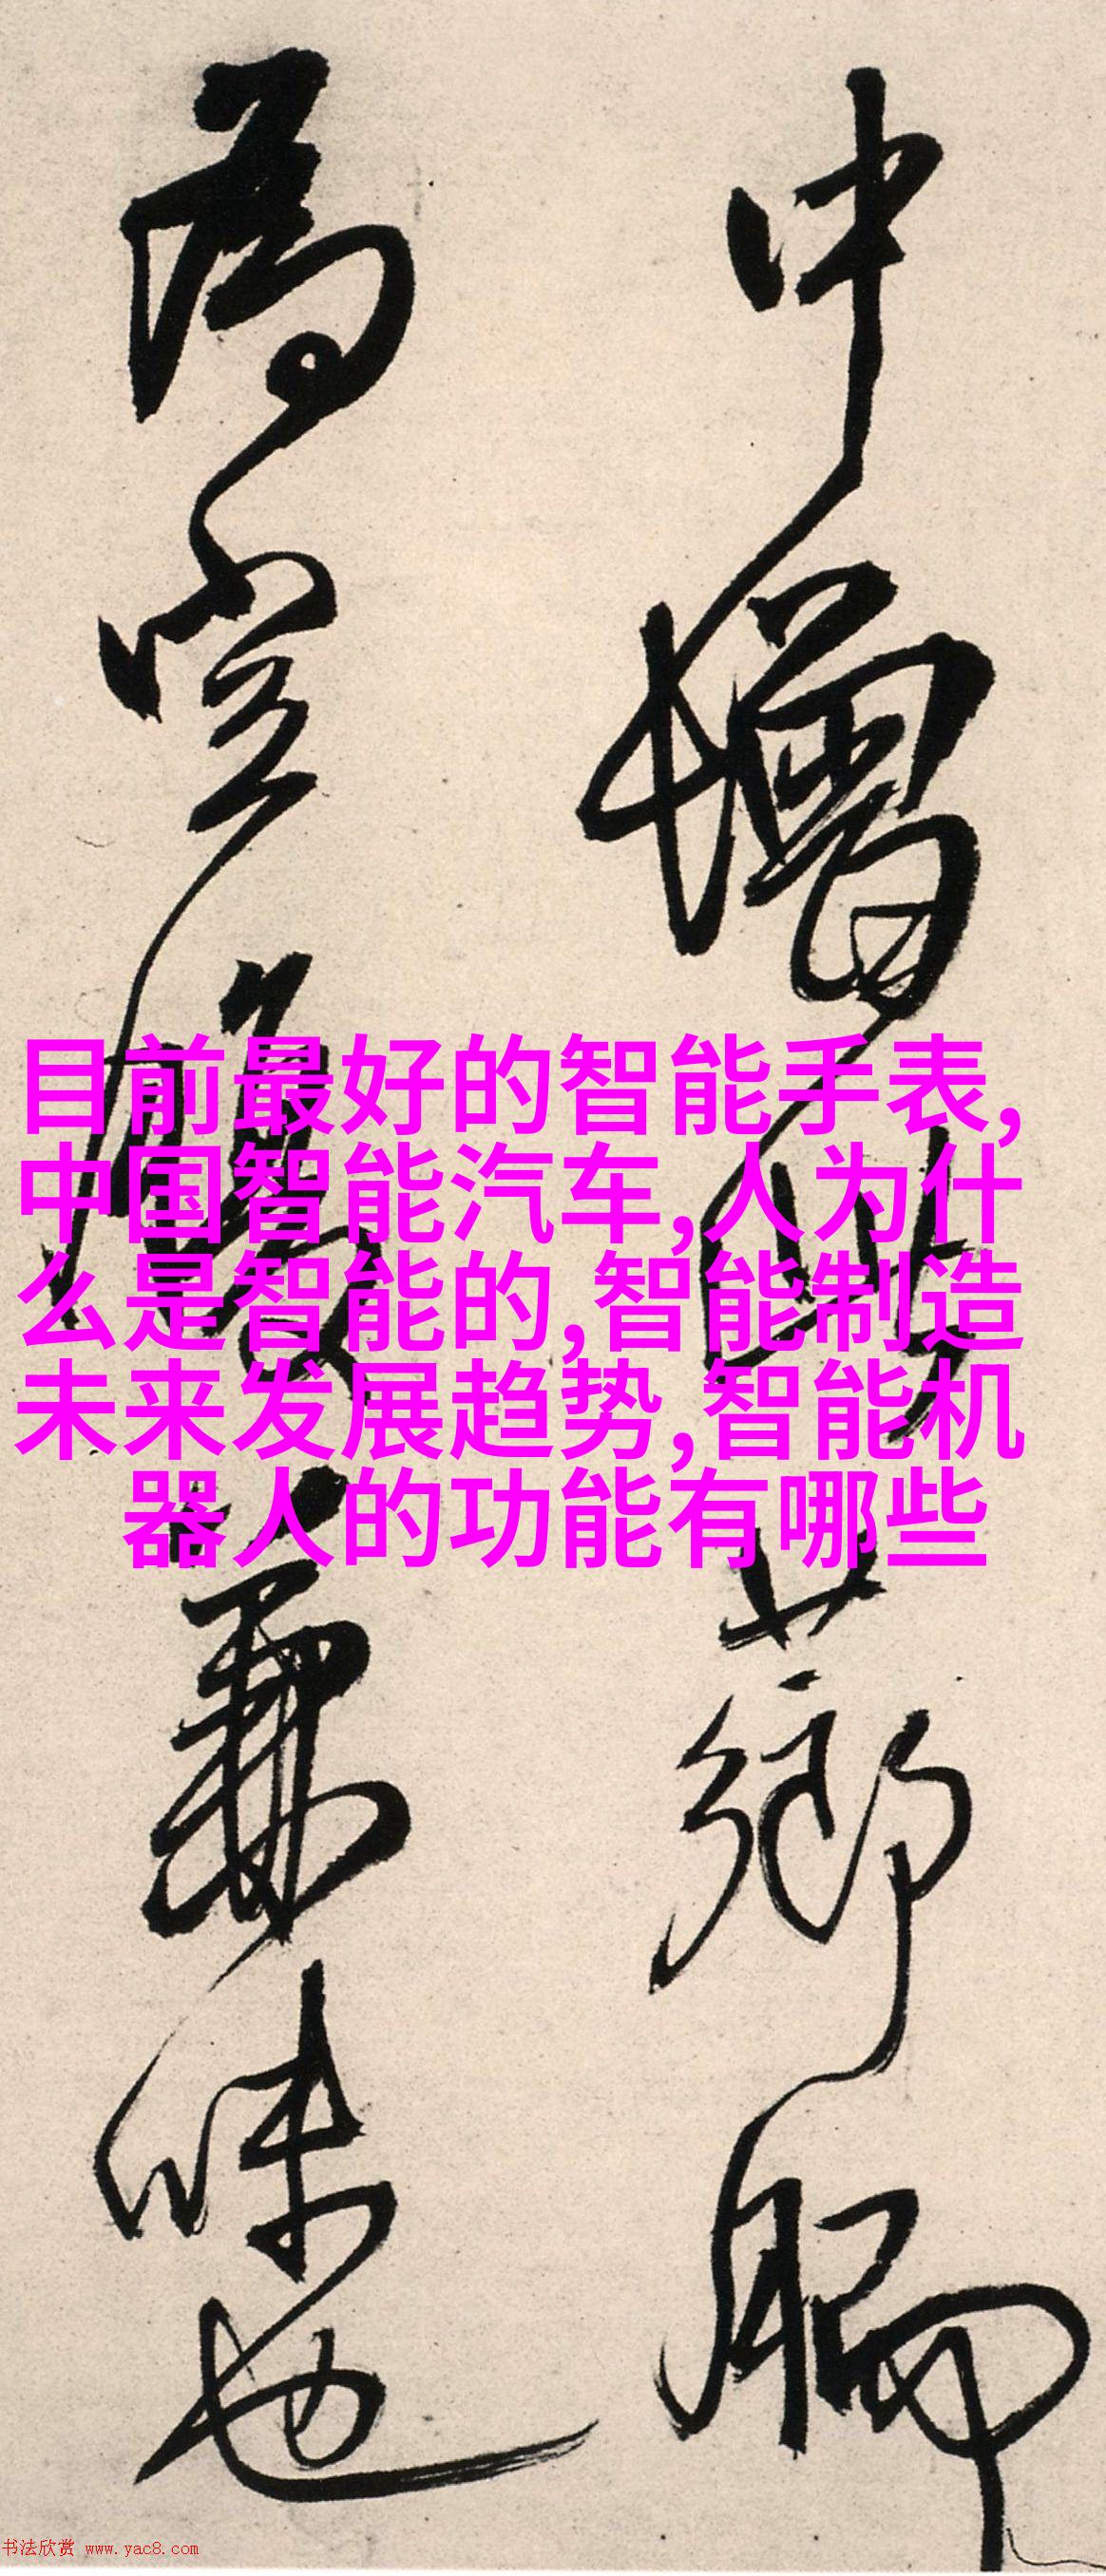 中增
為
味也
目前最好的智能手表,
中国智能汽车,人为什
么是智能的,智能制造
未来发展趋势,智能机
器人的功能有哪些
书法欣赏 www.yac8.com